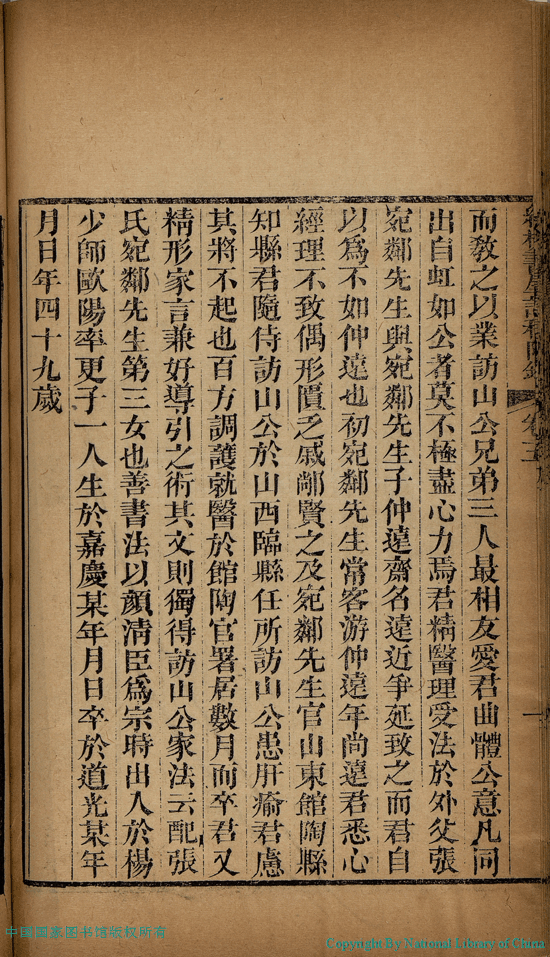 而教之以業訪山公兄弟三人最相友愛君曲體公意凡同
出自虹如公者莫不極盡心力焉君精醫理受法於外父張
宛鄰先生與宛鄰先生子仲遠齋名遠近爭延致之而君自
以為不如仲遠也初宛鄰先生常客游仲遠年尚遠君悉心
經理不致偶形匱乏戚鄰賢之及宛鄰先生官山東館陶縣
知縣君隨侍訪山公於山西臨縣任所訪山公患肝癰君慮
其將不起也百方調護就醫於館陶官署居數月而卒君又
精形家言兼好導引之術其文則獨得訪山公家法云配張
氏宛鄰先生第三女也善書法以顏清臣為宗時出入於楊
少師歐陽率更子一人生於嘉慶某年月日卒於道光某年
月日年四十九歲
卷三
一
中国国家图书馆版权所有
Copyright By National Library of China